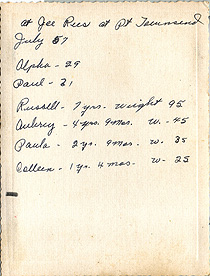 at Jee Rus at Pt Townsend
July 57
Alpha - 29
Paul - 31
Russell - 7 yrs. weight 95
Aubrey - 4 yrs. 9 mos. w. - 45
Paula - 2 yrs. 9 mos. w. 35
Colleen - 1 yr. 4 mos. w - 25